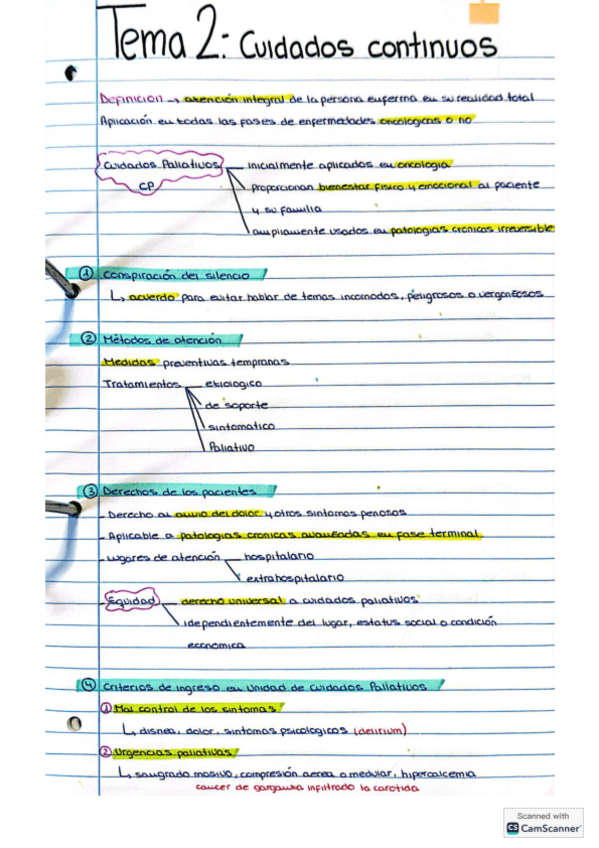 Tema 2: Cuidados continuos
Definicion → atención integral de la persona enferma en su realidad total
Aplicación en todas las fases de enfermedades oncologicas o no
Cuidados Paliativos inicialmente aplicados en oncologia
CP proporcionan bienestar fisico y emocional al paciente
y su familia
ampliamente usados en patologias cronicas irreversible
① Conspiración del silencio
↳ acuerdo para evitar hablar de temas incomodos, peligrosos o vergonzosos
② Métodos de atención
Medidas preventivas tempranas
Tratamientos etiologico
de soporte
sintomatico
Paliativo
③ Derechos de los pacientes
- Derecho al alivio del dolor y otros sintomas penosos
- Aplicable a patologias cronicas avanzadas en fase terminal
- Lugares de atención hospitalario
extrahospitalario
- Equidad derecho universal a cuidados paliativos
idependientemente del lugar, estatus social o condición
economica
④ Criterios de ingreso en Unidad de Cuidados Paliativos
① Mal control de los sintomas
↳ disnea, dolor, sintomas psicologicos (delirium)
② Urgencias paliativas
↳ sangrado masivo, compresión aerea o medular, hipercalcemia
cancer de garganta infiltrado la carotida
Scanned with
CS CamScanner